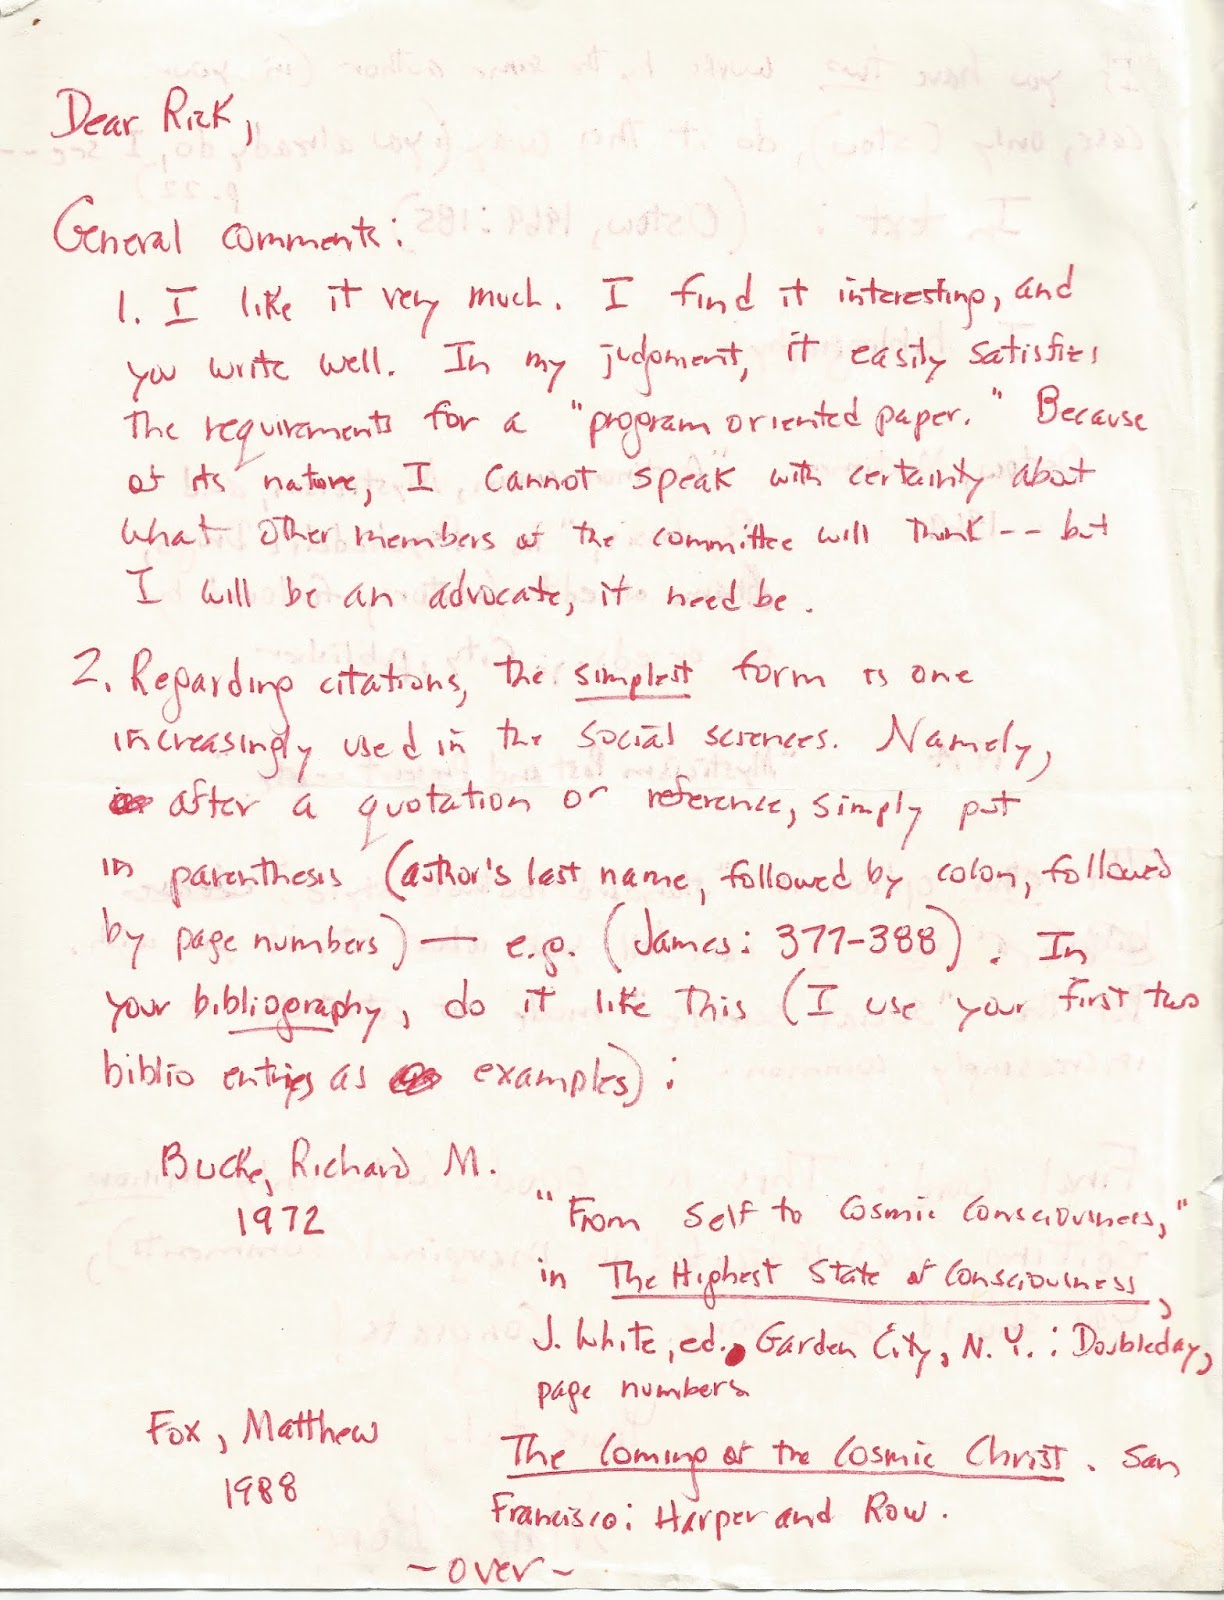 Dear Rick,
General comments:
1. I like it very much. I find it interesting, and
you write well. In my judgment, it easily satisfies
the requirements for a "program oriented paper." Because
of its nature, I cannot speak with certainty about
what other members of the committee will think -- but
I will be an advocate, if need be.
2. Regarding citations, the simplest form is one
increasingly used in the social sciences. Namely,
after a quotation or reference, simply put
in parenthesis (author's last name, followed by colon, followed
by page numbers) — e.g. (James: 377-388). In
your bibliography, do it like this (I use your first two
biblio entries as examples):
Bucke, Richard M.
1972
"From Self to Cosmic Consciousness,"
in The Highest State of Consciousness,
J. White, ed. Garden City, N.Y.: Doubleday,
page numbers
Fox, Matthew
1988
The Coming of the Cosmic Christ. San
Francisco: Harper and Row.
~ over ~